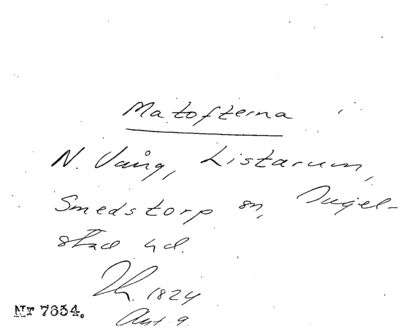 Matofterna
N. Vång, Listarum,
Smedstorp sn, Ingel-
stad hd.
Lh. 1824
Akt 9
Nr 7654.